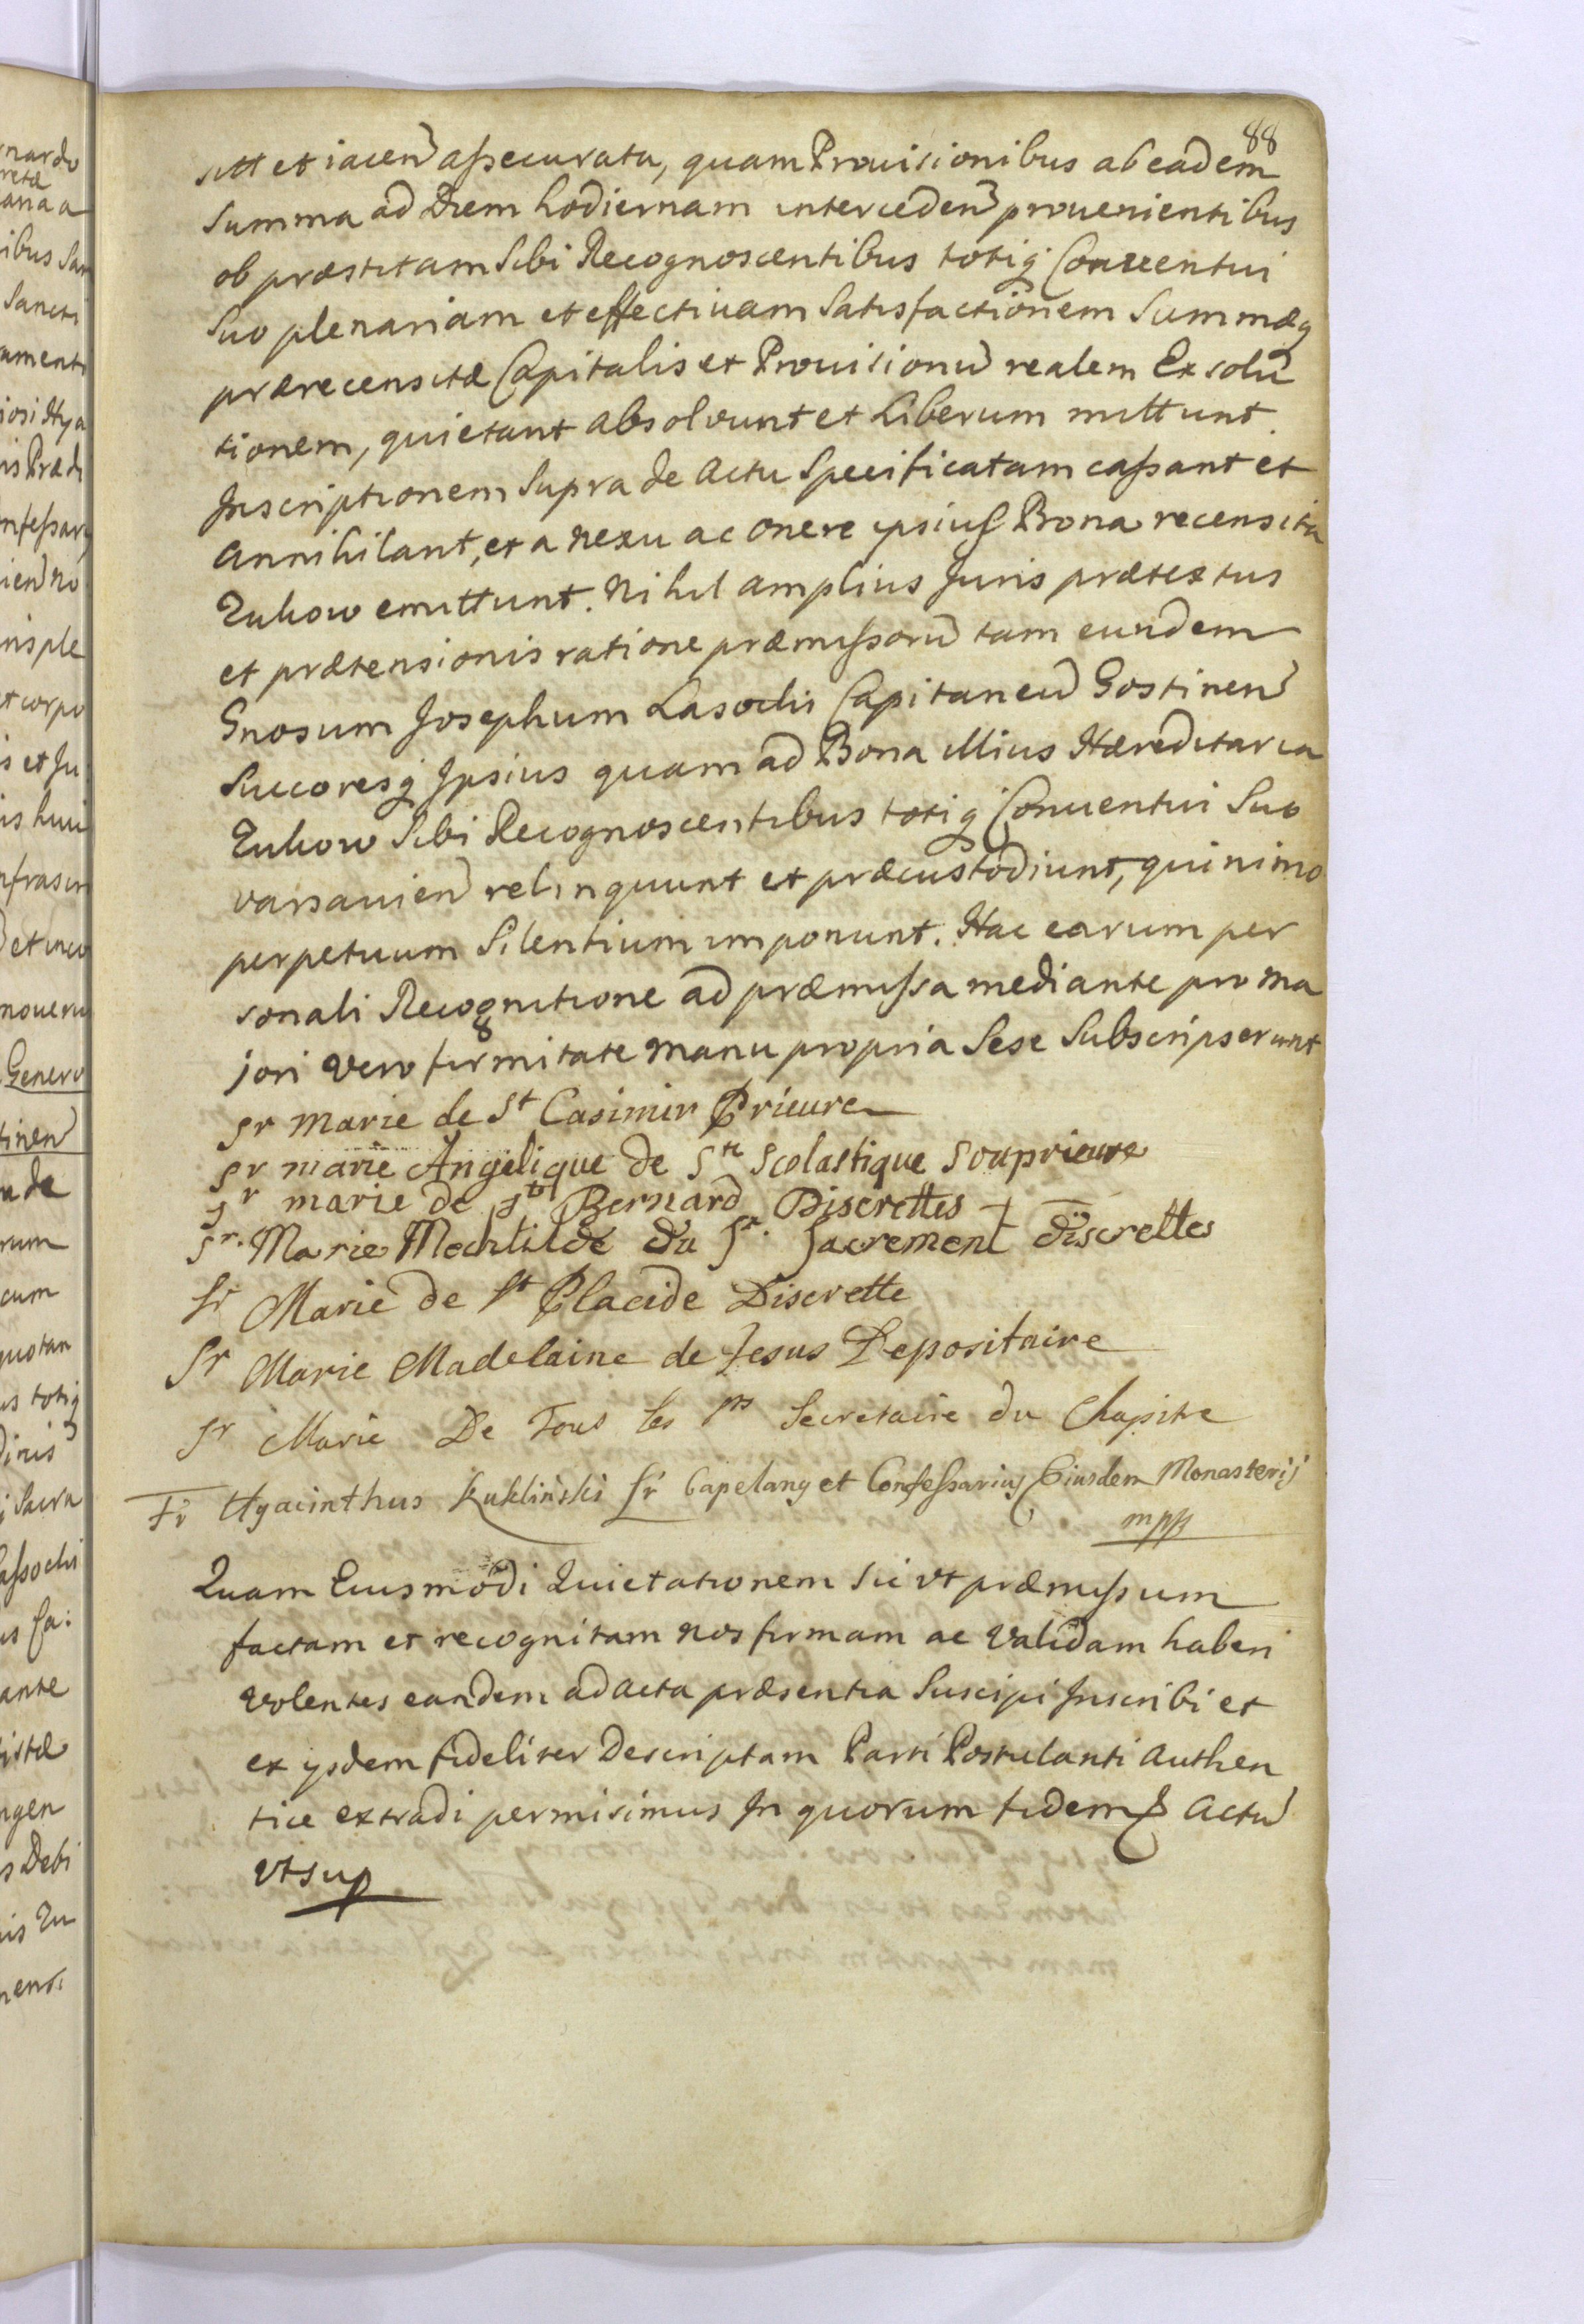 88
sitt et iacen assecurata, quam Prouisionibus ab eadem
Summa ad Diem hodiernam interceden prouenientibus
ob præstitam Sibi Recognoscentibus totiq Conuentui
Suo plenariam et effectiuam Satisfactionem Summæq
prærecensitæ Capitalis et Prouisionu realem Exsolu
tionem, quietant absoluunt et Liberum mittunt.
Inscriptionem Supra de Actu Specificatam cassant et
annihilant, et a nexu ac onere ipsius Bona recensita
Zuhow emittunt. Nihil amplius Juris prætextus
et prætensionis ratione præmissoru tam eundem
Gnosum Josephum Lasocki Capitaneu Gostinen
Succoresq Ipsius quam ad Bona illius Hæreditaria
Zuhow Sibi Recognoscentibus totiq Conuentui Suo
varsauien relinquunt et præcustodiunt, quinimo
perpetuum Silentium imponunt. Hac earum per
sonali Recognitione ad præmissa mediante pro ma
jori vero firmitate manu propria Sese Subscripserunt
Sr marie de St Casimir Prieure
Sr marie Angelique de Ste Scolastique Souprieure
Sr marie de St Bernard Discrettes
Sr. Marie Mechtilde du St. Sacrement discrettes
Sr Marie de St Placide Discrette
Sr Marie Madelaine de Jesus Depositaire
Sr Marie De Tous les Sts Secretaire du Chapitre
Fr Hyacinthus Kukliński Sr Capelany et Confessarius Eiusdem Monasterij
mpp
Quam Eiusmodi Quietationem sic vt præmissum
factam et recognitam nos firmam ac validam haberi
volentes eandem ad acta præsentia Suscipi Inscribi et
ex ysdem fideliter Descriptam Parti Postulanti Authen
tice extradi permisimus In quorum fidem & Actu
vt sup